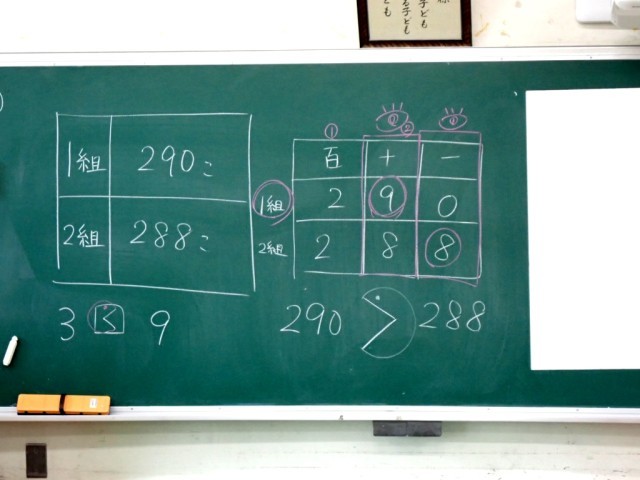 子ども
る子ども
とも
1組 290こ
2組 288こ
3 < 9
① ② ②
百 十 一
1組 2 9 0
2組 2 8 8
290 > 288